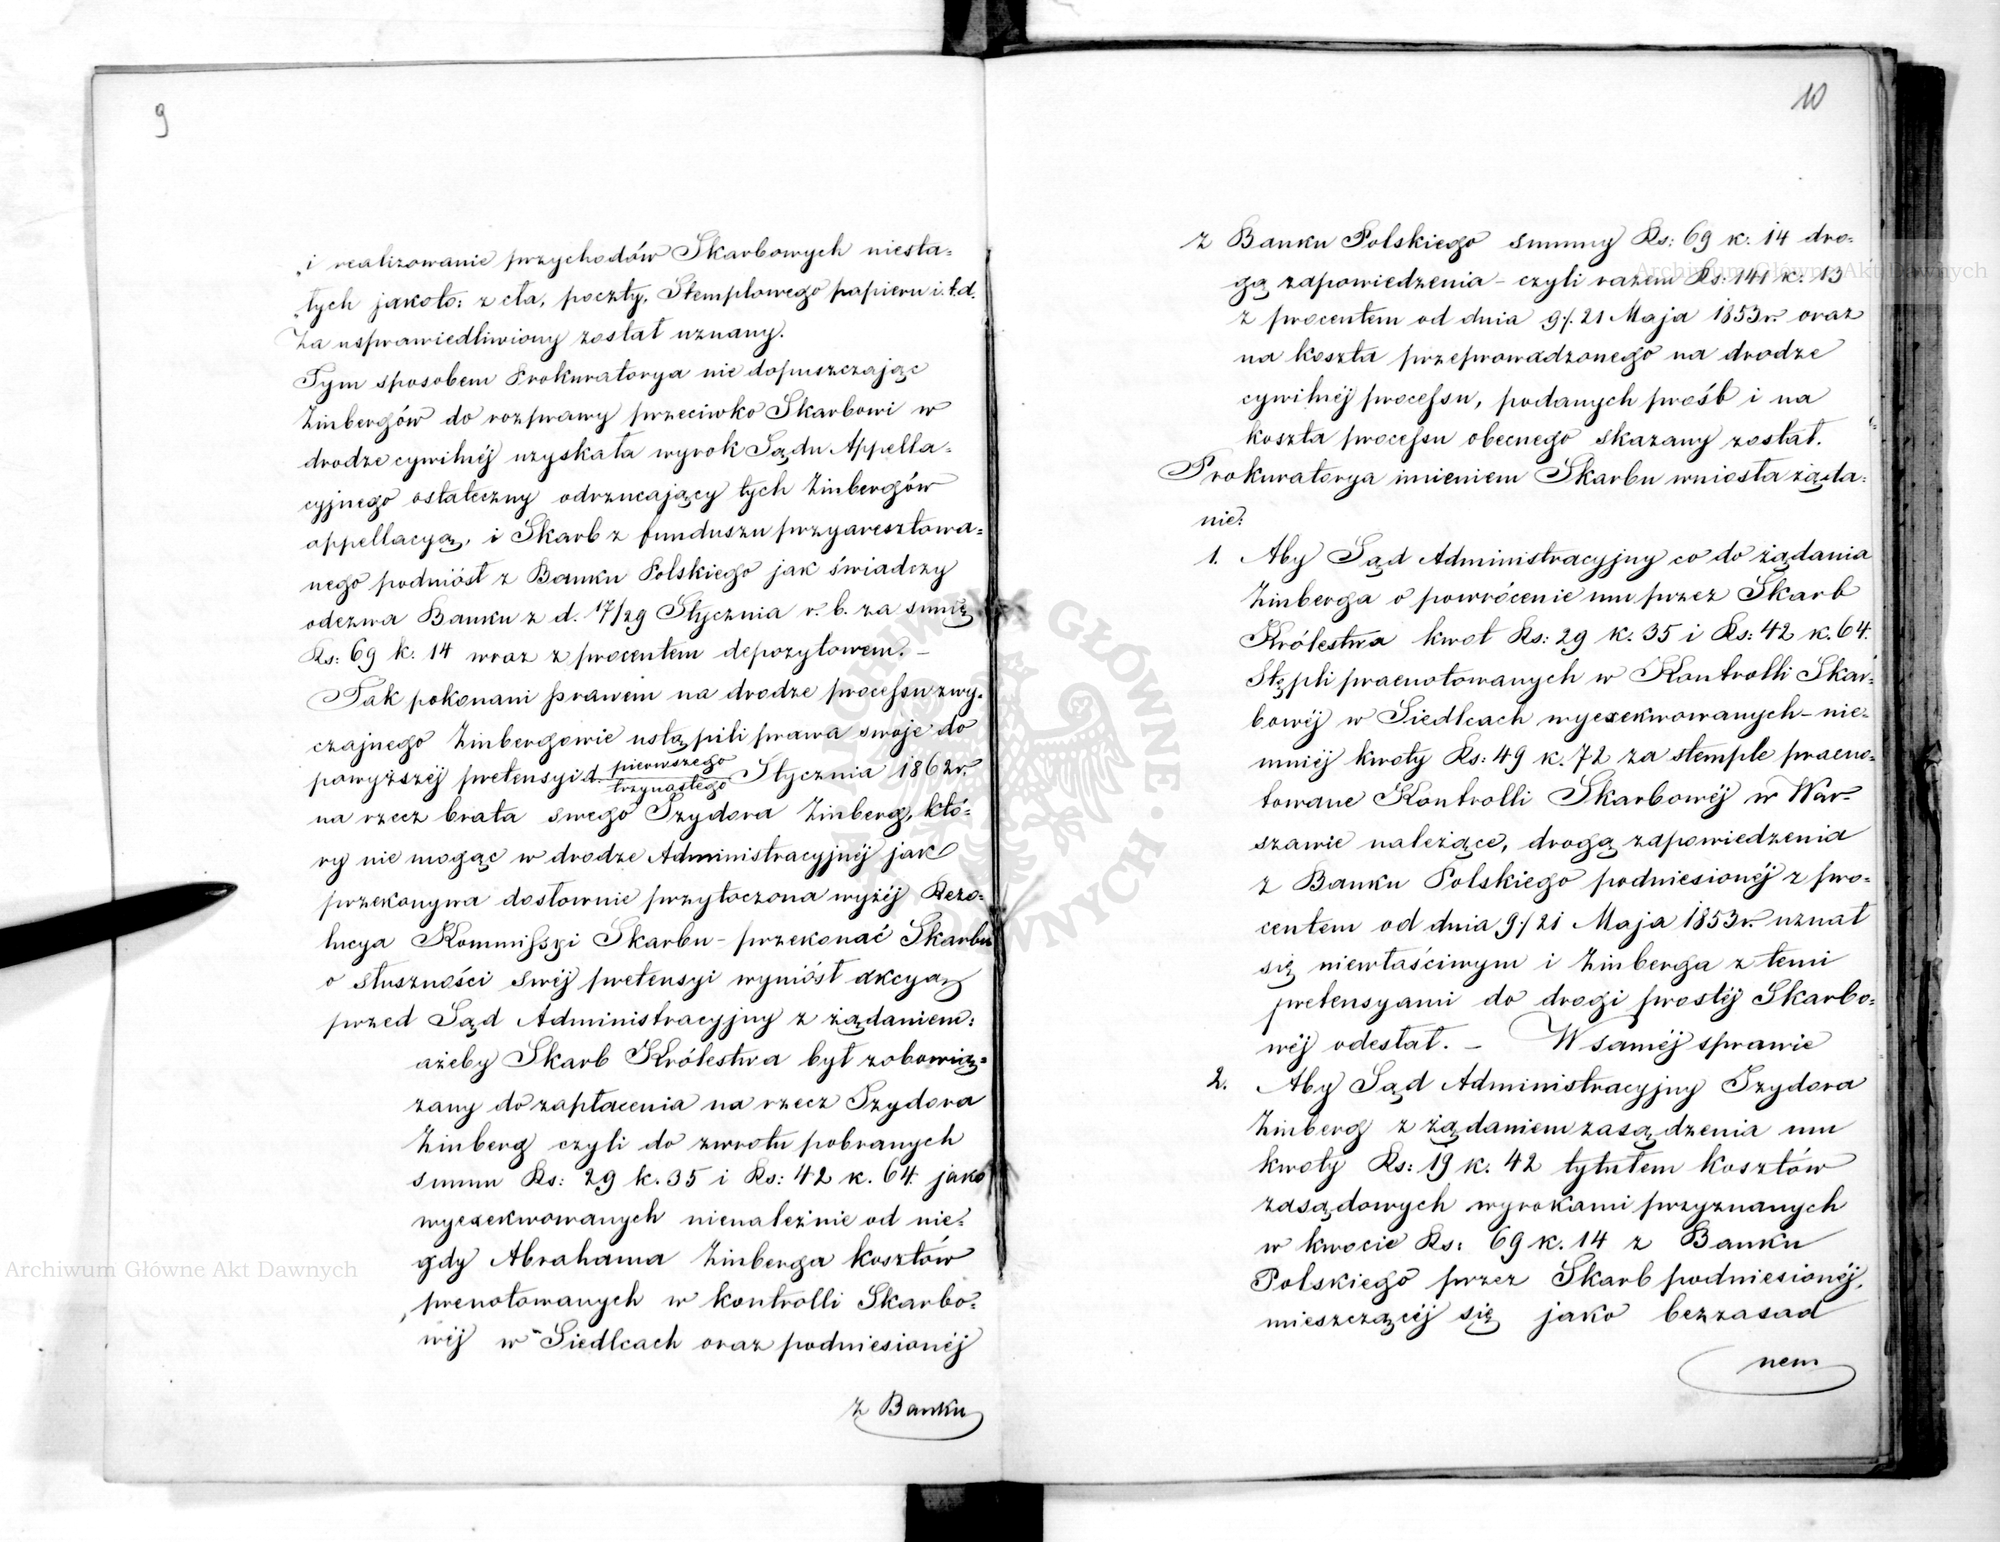 9
„i realizowanie przychodów Skarbowych niesta-
„łych jakoto: z cła, poczty, Stemplowego papieru i.t.d.
Za usprawiedliwiony został uznany.
Tym sposobem Prokuratorya nie dopuszczając
Zinbergów do rozprawy przeciwko Skarbowi w
drodze cywilnéj uzyskała wyrok Sądu Appella-
cyjnego ostateczny odrzucający tych Zinbergów
appellacyą, i Skarb z funduszu przyaresztowa-
nego podniósł z Banku Polskiego jak świadczy
odezwa Banku z d. 17/29 Stycznia r. b. za sumę
Rs: 69 k. 14 wraz z procentem depozytowem. –
Tak pokonani prawem na drodze processu zwy-
czajnego Zinbergowie ustąpili prawa swoje do
powyższéj pretensyi d. pierwszego/trzynastego Stycznia 1862 r.
na rzecz brata swego Izydora Zinberg, któ-
ry nie mogąc w drodze Administracyjnéj jak
przekonywa dosłownie przytoczona wyżéj Rezo-
lucya Kommissyi Skarbu – przekonać Skarbu
o słuszności swéj pretensyi wyniósł akcyą
przed Sąd Administracyjny z żądaniem:
ażeby Skarb Królestwa był zobowią-
zany do zapłacenia na rzecz Izydora
Zinberg czyli do zwrotu pobranych
summ Rs: 29 k. 35 i Rs: 42 k. 64 jako
wyexekwowanych nienależnie od nie-
gdy Abrahama Zinberga kosztów
prenotowanych w kontrolli Skarbo-
wéj w Siedlcach oraz podniesionéj
z Banku
10
z Banku Polskiego summy Rs: 69 k. 14 dro-
gą zapowiedzenia – czyli razem Rs: 141 k. 13
z procentem od dnia 9/21 Maja 1853 r. oraz
na koszta przeprowadzonego na drodze
cywilnéj processu, podanych prośb i na
koszta processu obecnego skazany został.
Prokuratorya imieniem Skarbu wniosła żąda-
nie:
1. Aby Sąd Administracyjny co do żądania
Zinberga o powrócenie mu przez Skarb
Królestwa kwot Rs: 29 k. 35 i Rs: 42 k. 64
Stępli praenotowanych w Kontrolli Skar-
bowéj w Siedlcach wyexekwowanych – nie-
mniéj kwoty Rs: 49 k. 72 za stemple praeno-
towane Kontrolli Skarbowéj w War-
szawie należące, drogą zapowiedzenia
z Banku Polskiego podniesionéj z pro-
centem od dnia 9/21 Maja 1853 r. uznał
się niewłaściwym i Zinberga z temi
pretensyami do drogi prostéj Skarbo-
wéj odesłał. – W saméj sprawie
2. Aby Sąd Administracyjny Izydora
Zinberg z żądaniem zasądzenia mu
kwoty Rs: 19 k. 42 tytułem kosztów
zasądowych wyrokami przyznanych
w kwocie Rs: 69 k. 14 z Banku
Polskiego przez Skarb podniesionéj,
mieszczącéj się jako bezzasad
nem
Archiwum Główne Akt Dawnych
Archiwum Główne Akt Dawnych
ARCHIWUM GŁÓWNE AKT DAWNYCH